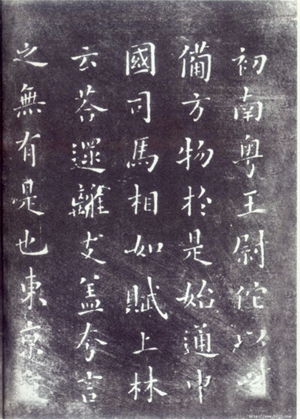 初南粵王尉佗以之
備方物於是始通中
國司馬相如賦上林
云荅遝離支盖夸言
之無有是也東京